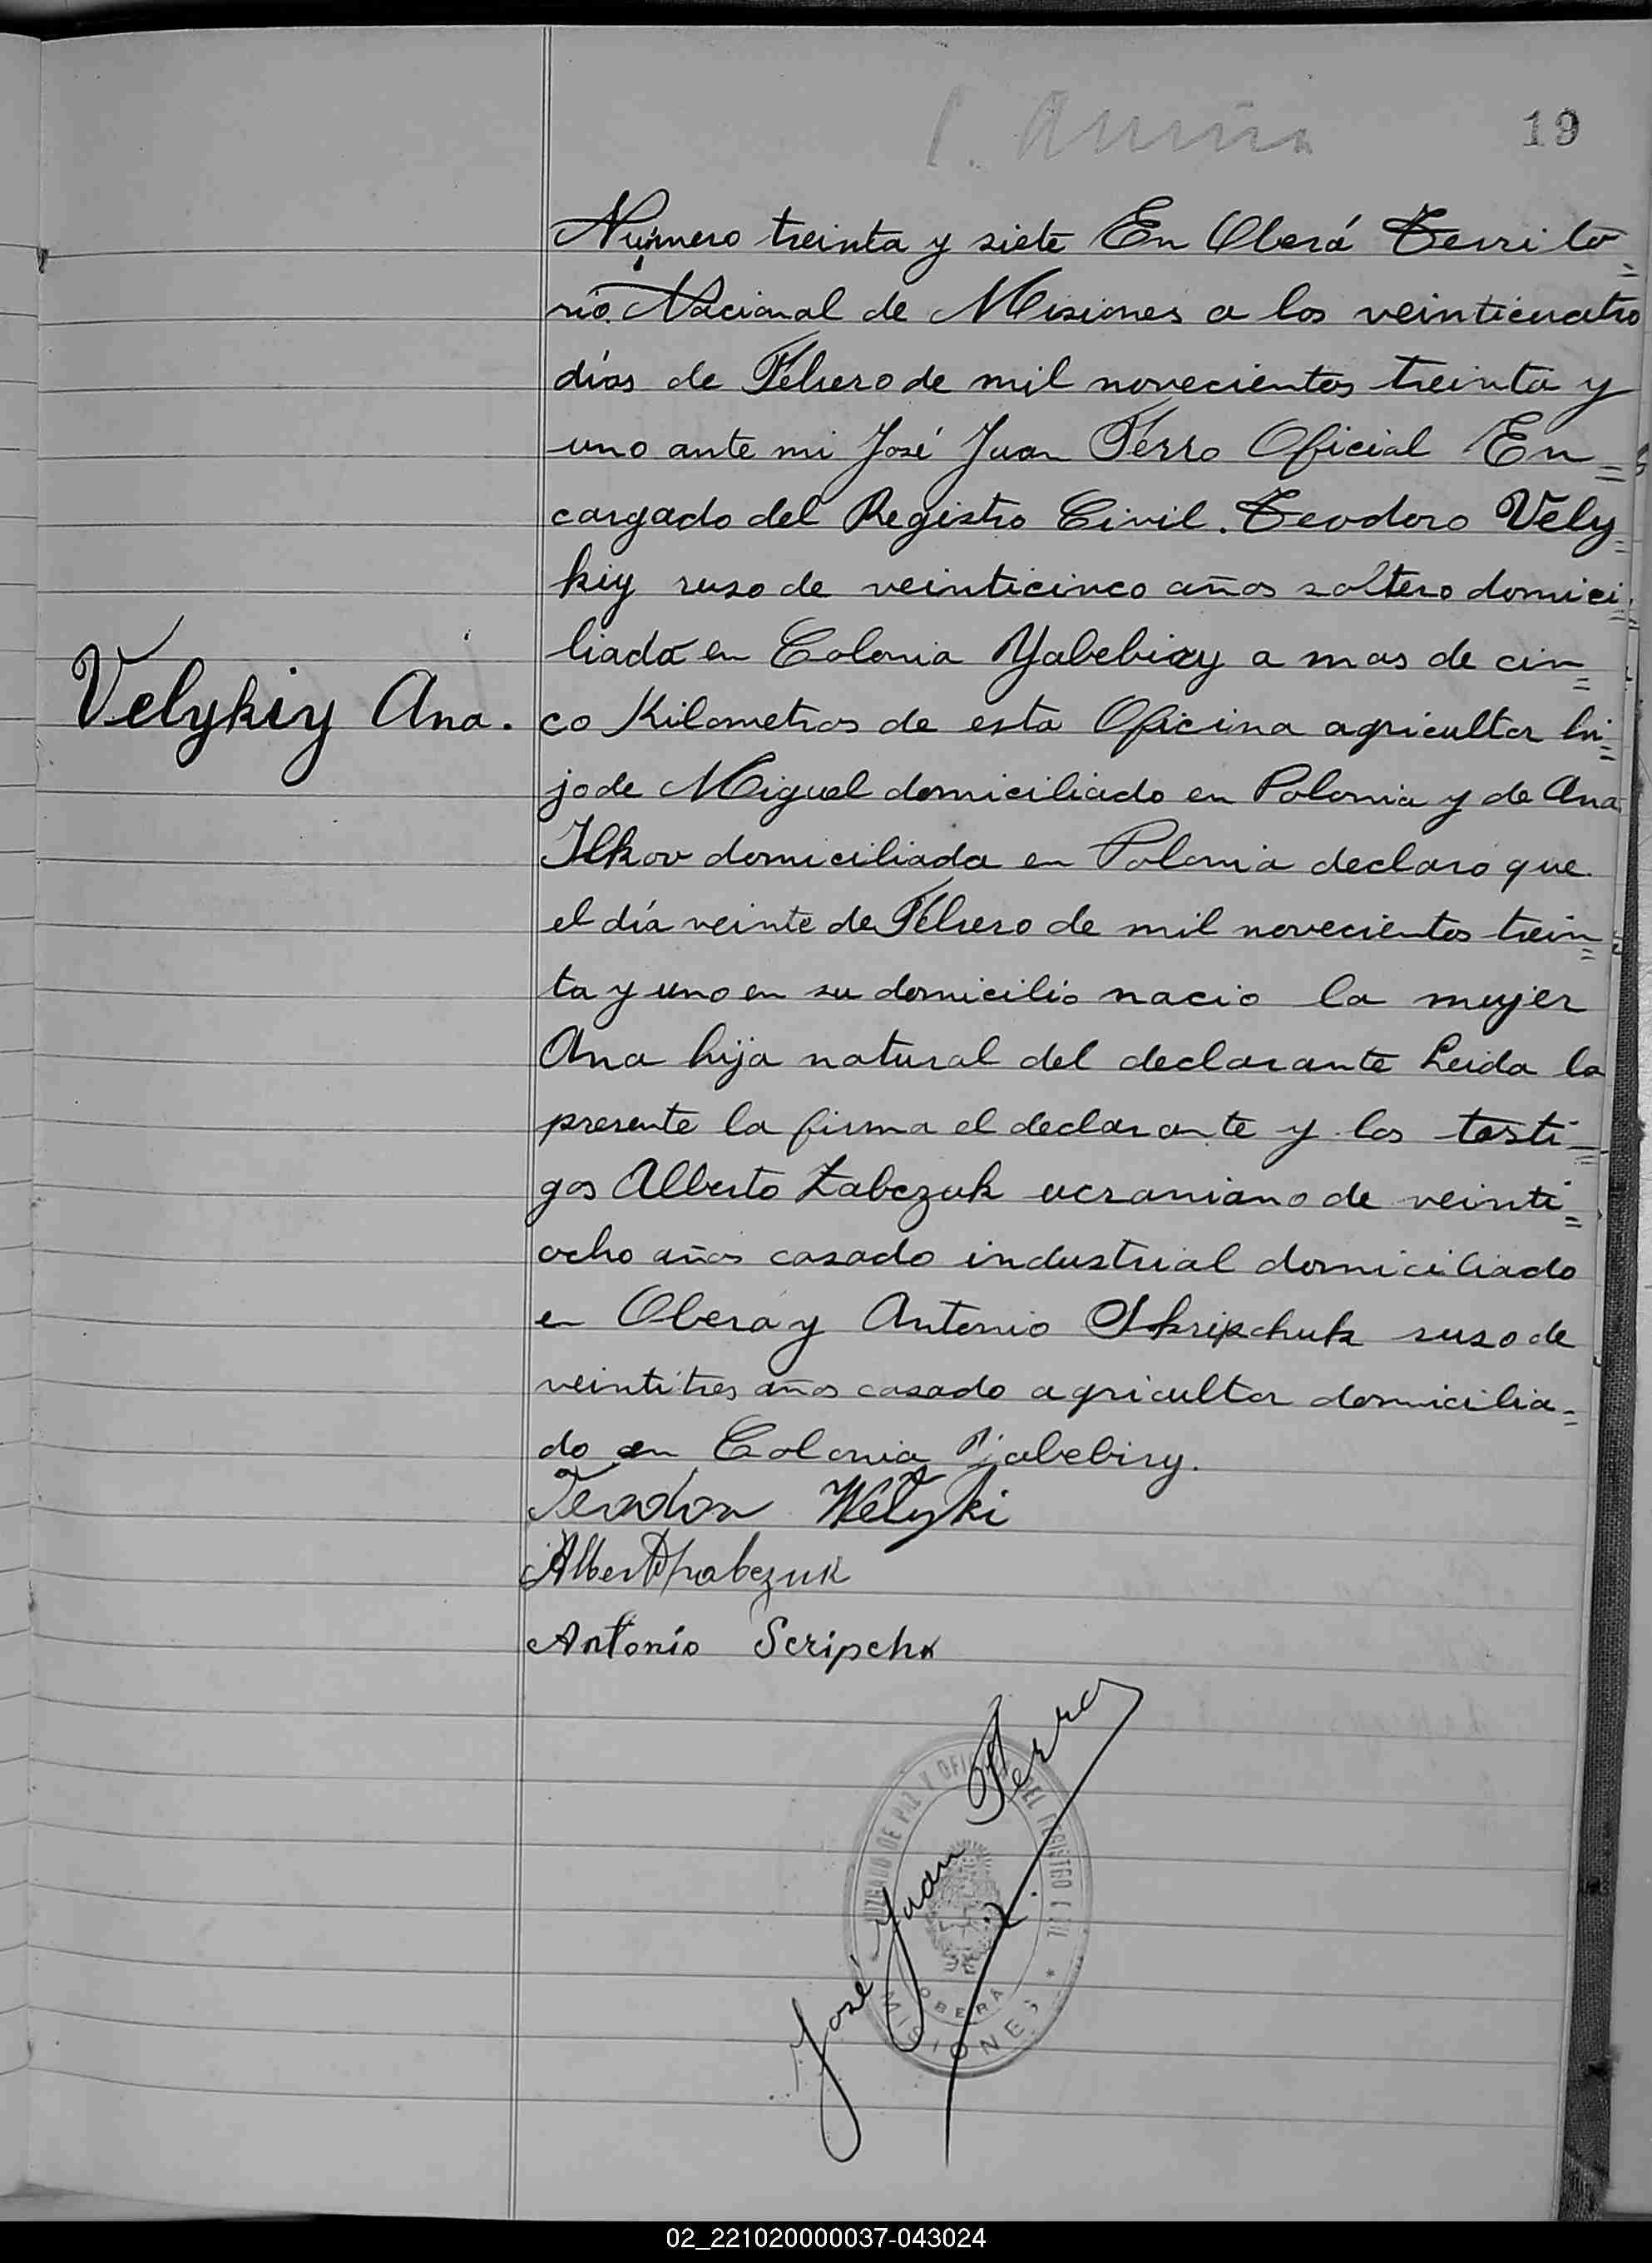 19
Número treinta y siete En Oberá Territo=
rio Nacional de Misiones a los veinticuatro
días de Febrero de mil novecientos treinta y
uno ante mi José Juan Ferro Oficial En=
cargado del Registro Civil. Teodoro Vely=
kiy ruso de veinticinco años soltero domici=
liado en Colonia Yabebiry a mas de cin=
Velykiy Ana.
co Kilometros de esta Oficina agricultor hi=
jo de Miguel domiciliado en Polonia y de Ana
Ilkov domiciliada en Polonia declaró que
el día veinte de Febrero de mil novecientos trein=
ta y uno en su domicilio nacio la mujer
Ana hija natural del declarante Leida la
presente la firma el declarante y los testi=
gos Alberto Zabczuk ucraniano de veinti=
ocho años casado industrial domiciliado
en Obera y Antonio Skripchuk ruso de
veintitres años casado agricultor domicilia=
do en Colonia Yabebiry.
Teodor Welyki
Antonio Scripchk
José Juan Ferro
JUZGADO DE PAZ Y OFICINA DEL REGISTRO CIVIL
OBERÁ
MISIONES
02_221020000037-043024